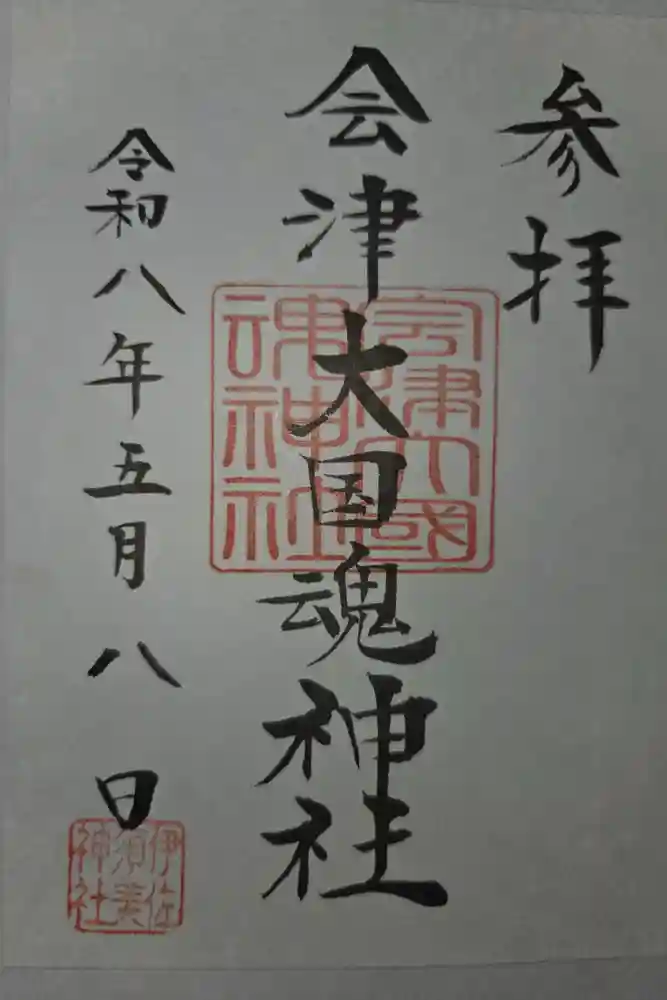 参拝
会津大国魂神社
会津大國魂神社
令和八年五月八日
伊佐須美神社